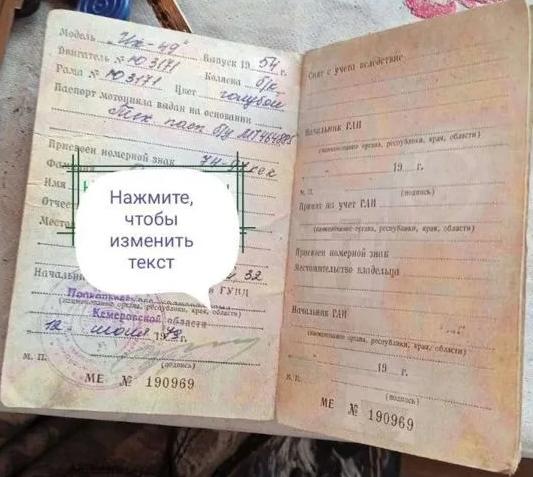 Модель „Иж-49"
Выпуск 1954 г.
Двигатель № Ю3171
Коляска б/к
Рама № Ю3171 Цвет голубой
Паспорт мотоцикла выдан на основании
пасп.
Присвоен номерной знак 74-07 кек
Фамилия
Имя
Отчес
Место
Нажмите,
чтобы
изменить
текст
Начальник 32
ГУВД
(наименование органа, республики, края, области)
Кемеровской области
12 июня 1979 г.
М. П. (подпись)
МЕ № 190969
Снят с учета вследствие
Начальник ГАИ
(наименование органа, республики, края, области)
19 г.
М. П. (подпись)
Принят на учет ГАИ
(наименование органа, республики, края, области)
Присвоен номерной знак
Местожительство владельца
Начальник ГАИ
(наименование органа, республики, края, области)
19 г.
М. П. (подпись)
МЕ № 190969